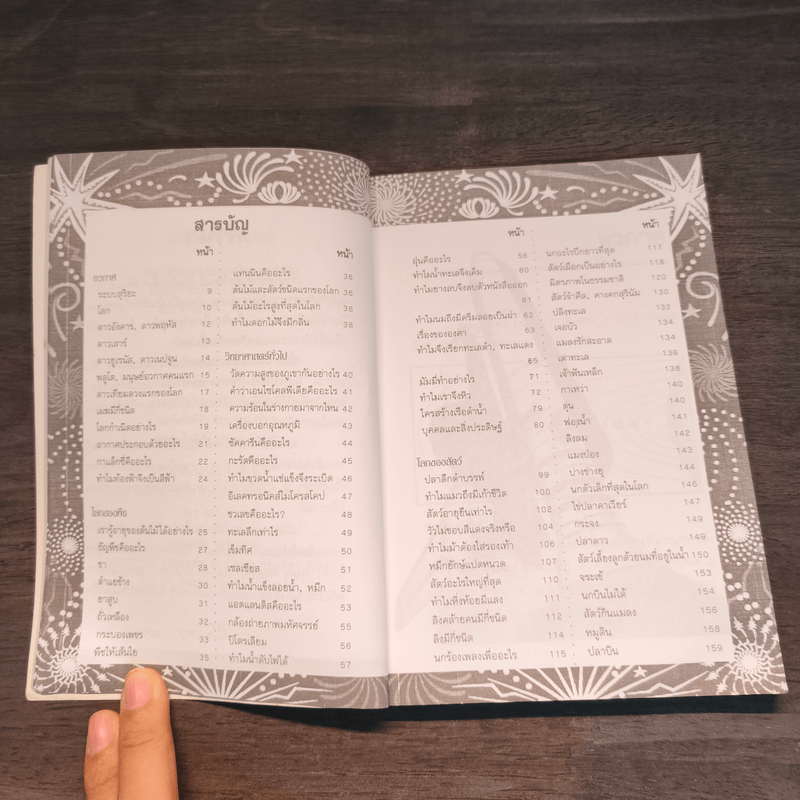 สารบัญ
หน้า
อวกาศ
ระบบสุริยะ 9
โลก 10
ดาวอังคาร, ดาวพฤหัส 12
ดาวเสาร์ 13
ดาวยูเรนัส, ดาวเนปจูน 14
พลูโต, มนุษย์อวกาศคนแรก 15
ดาวเทียมดวงแรกของโลก 17
เมฆมีกี่ชนิด 18
โลกกำเนิดอย่างไร 19
อากาศประกอบด้วยอะไร 21
กาแล็กซี่คืออะไร 22
ทำไมท้องฟ้าจึงเป็นสีฟ้า 24
โลกของพืช
เรารู้อายุของต้นไม้ได้อย่างไร 25
ธัญพืชคืออะไร 27
ชา 28
ตำแยช้าง 30
ยาสูบ 31
ถั่วเหลือง 32
กระบองเพชร 33
พืชให้เส้นใย 35
หน้า
แทนนินคืออะไร 36
ต้นไม้และสัตว์ชนิดแรกของโลก 36
ต้นไม้อะไรสูงที่สุดในโลก 38
ทำไมดอกไม้จึงมีกลิ่น 38
วิทยาศาสตร์ทั่วไป
วัดความสูงของภูเขากันอย่างไร 40
คำว่าเอนไซโคลพีเดียคืออะไร 41
ความร้อนในร่างกายมาจากไหน 42
เครื่องบอกอุณหภูมิ 43
ซัคคารีนคืออะไร 44
กะรัตคืออะไร 45
ทำไมขวดน้ำแช่แข็งจึงระเบิด 46
อิเลคทรอนิคส์ไมโครสโคป 47
ชวเลขคืออะไร? 48
ทะเลลึกเท่าไร 49
เข็มทิศ 50
เซลเซียส 51
ทำไมน้ำแข็งลอยน้ำ, หมึก 52
แอตแลนติสคืออะไร 53
กล้องถ่ายภาพมหัศจรรย์ 55
ปิโตรเลียม 56
ทำไมน้ำดับไฟได้ 57
หน้า
ฝุ่นคืออะไร 58
ทำไมน้ำทะเลจึงเค็ม 60
ทำไมยางลบจึงลบตัวหนังสือออก
61
ทำไมนมถึงมีครีมลอยเป็นฝา 62
เรื่องขององศา 63
ทำไมจึงเรียกทะเลดำ, ทะเลแดง
65
มัมมี่ทำอย่างไร 71
ทำไมเราจึงหิว 72
ใครสร้างเรือดำน้ำ 79
บุคคลและสิ่งประดิษฐ์ 80
โลกของสัตว์
ปลาดึกดำบรรพ์ 99
ทำไมแมวถึงมีเก้าชีวิต 100
สัตว์อายุยืนเท่าไร 102
วัวไม่ชอบสีแดงจริงหรือ 104
ทำไมม้าต้องใส่รองเท้า 106
หมึกยักษ์แปดหนวด 107
สัตว์อะไรใหญ่ที่สุด 110
ทำไมหิ่งห้อยมีแสง 111
ลิงคล้ายคนมีกี่ชนิด 112
ลิงมีกี่ชนิด 114
นกร้องเพลงเพื่ออะไร 115
หน้า
นกอะไรปีกยาวที่สุด 117
สัตว์เผือกเป็นอย่างไร 118
มิตรภาพในธรรมชาติ 120
สัตว์จำศีล, คางคกสุรินัม 130
ปลิงทะเล 132
เจอบัว 134
แมลงรักสะอาด 134
เต่าทะเล 136
เจ้าฟันเหล็ก 138
กาเหว่า 140
ตุ่น 140
ฟองน้ำ 141
ลิงลม 142
แมงป่อง 143
บ่างช่างยุ 144
นกตัวเล็กที่สุดในโลก 146
ไข่ปลาคาเวียร์ 147
กระจง 149
ปลาดาว 149
สัตว์เลี้ยงลูกด้วยนมที่อยู่ในน้ำ 150
จระเข้ 153
นกบินไม่ได้ 154
สัตว์กินแมลง 156
หมูดิน 158
ปลาบิน 159